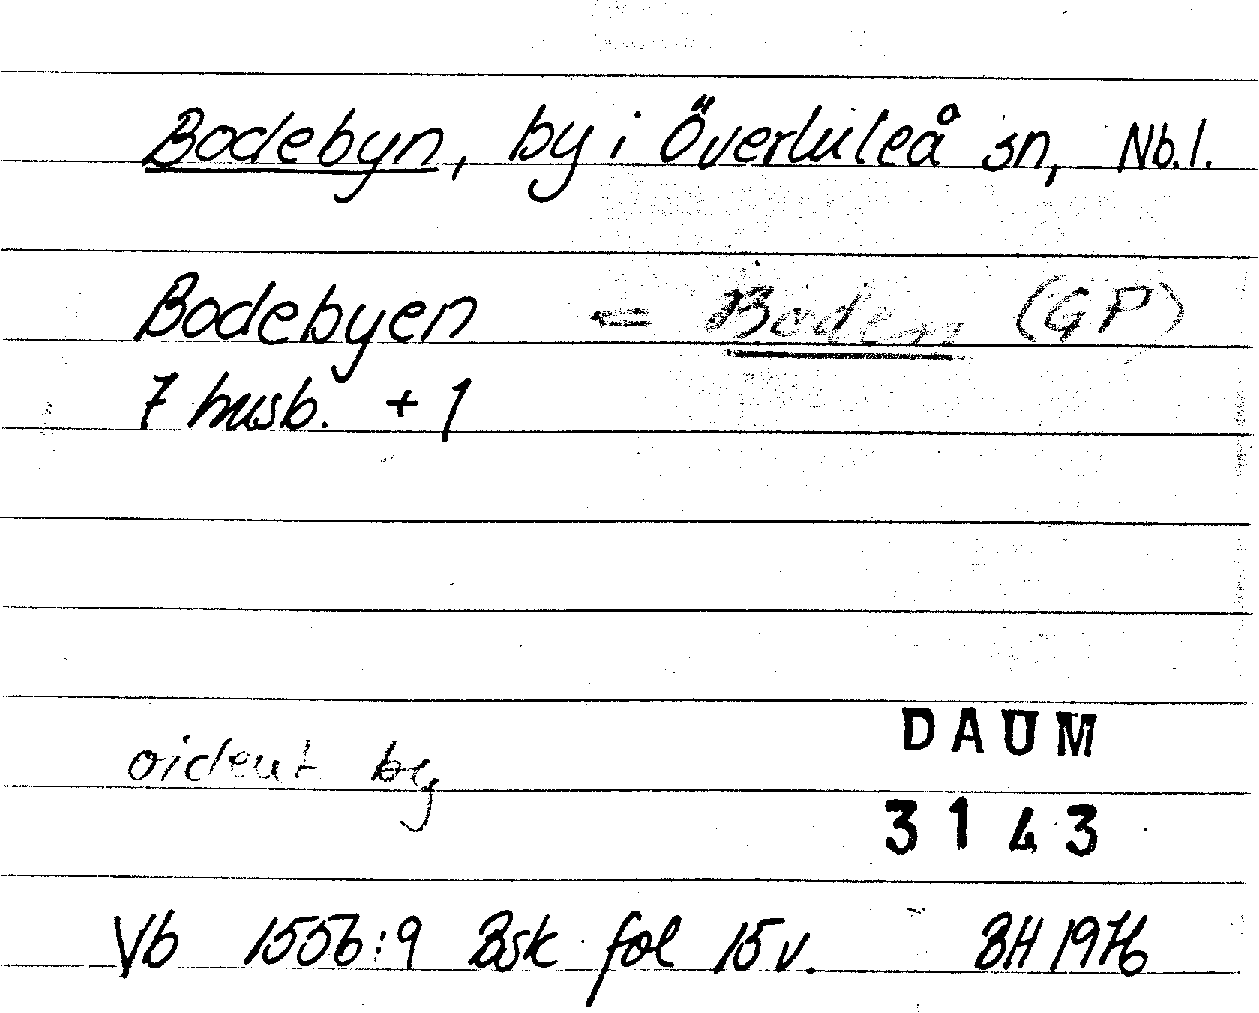 Bodebyn, by i Överluleå sn, Nb.l.
Bodebyen = Boden (GP)
7 husb. + 1
oident by
DAUM
3143
Vb 1556:9 Bsk fol 15 v. BH 1976